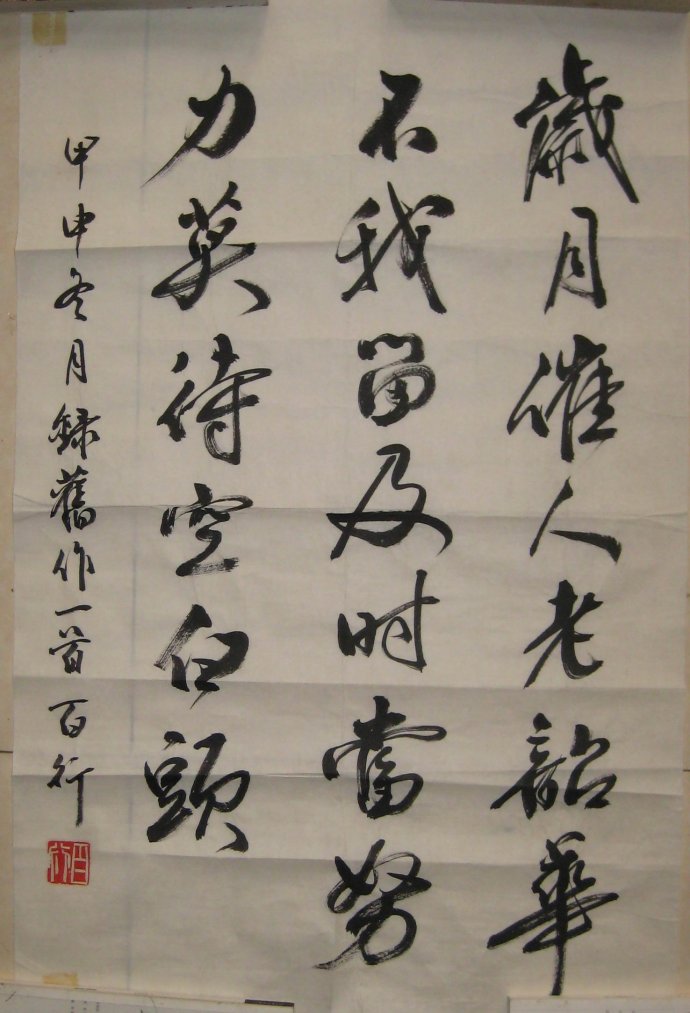 歲月催人老韶華
不我留及时當努
力莫待空白頭
甲申冬月錄舊作一首百行
百行